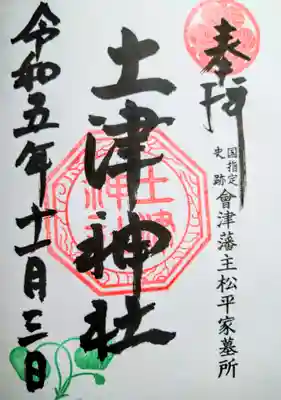 奉拝
国指定
史跡
會津藩主松平家墓所
土津神社
令和五年十一月三日